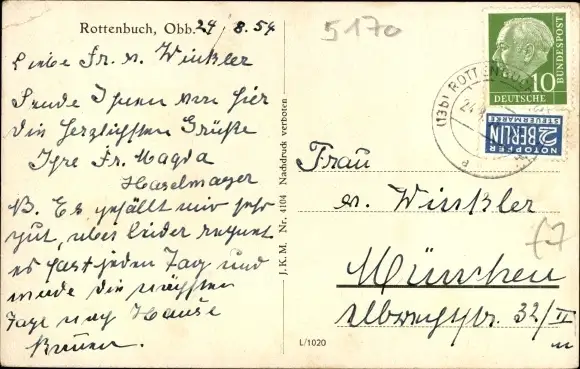 Rottenbuch, Obb. 24/8.54
Liebe Fr. v. Winkler
Sende Ihnen von hier
die herzlichsten Grüße
Ihre Fr. Magda
Haselmayer
B. Es gefällt mir sehr
gut, aber leider regnet
es fast jeden Tag und
werde die nächsten
Tage nach Hause
J.K.M. Nr. 4104 Nachdruck verboten
L/1020
5170
DEUTSCHE BUNDESPOST
10
(13b) ROTTENBUCH
24.
NOTOPFER
2 BERLIN
STEUERMARKE
Frau
v. Winkler
München
32/II